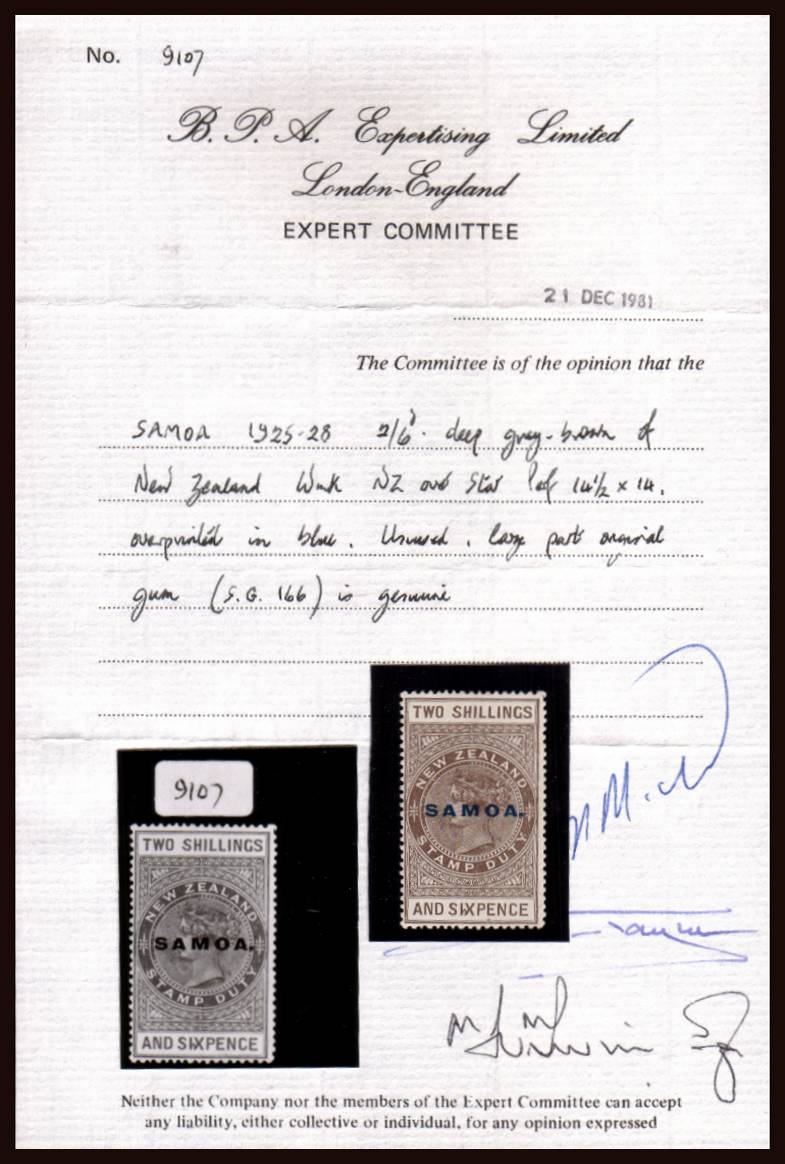 No. 9107
B. P. A. Expertising Limited
London-England
EXPERT COMMITTEE
21 DEC 1981
The Committee is of the opinion that the
SAMOA 1925-28 2/6d. deep grey-brown of
New Zealand Wmk NZ and Star Perf 14½ x 14,
overprinted in blue. Unused, large part original
gum (S.G. 166) is genuine
TWO SHILLINGS
NEW ZEALAND
SAMOA.
STAMP DUTY
AND SIXPENCE
9107
TWO SHILLINGS
NEW ZEALAND
SAMOA.
STAMP DUTY
AND SIXPENCE
Neither the Company nor the members of the Expert Committee can accept
any liability, either collective or individual, for any opinion expressed